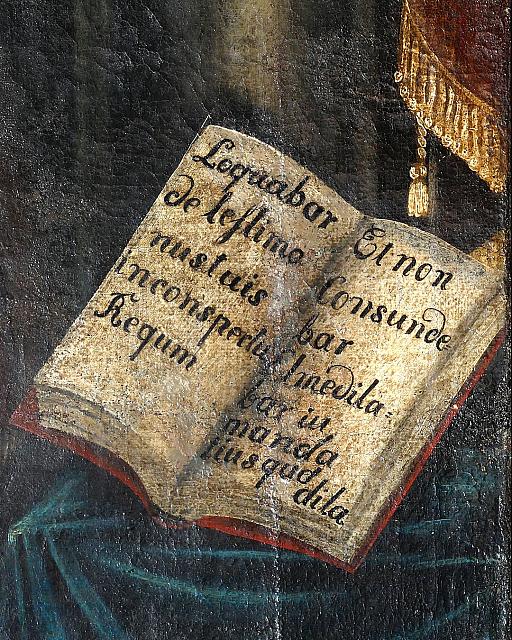 Loquabar
de testimo
nustuis
inconspectu
Regum
Et non
Consunde
bar
Etmedita:
bar in
manda
tiusque
dila